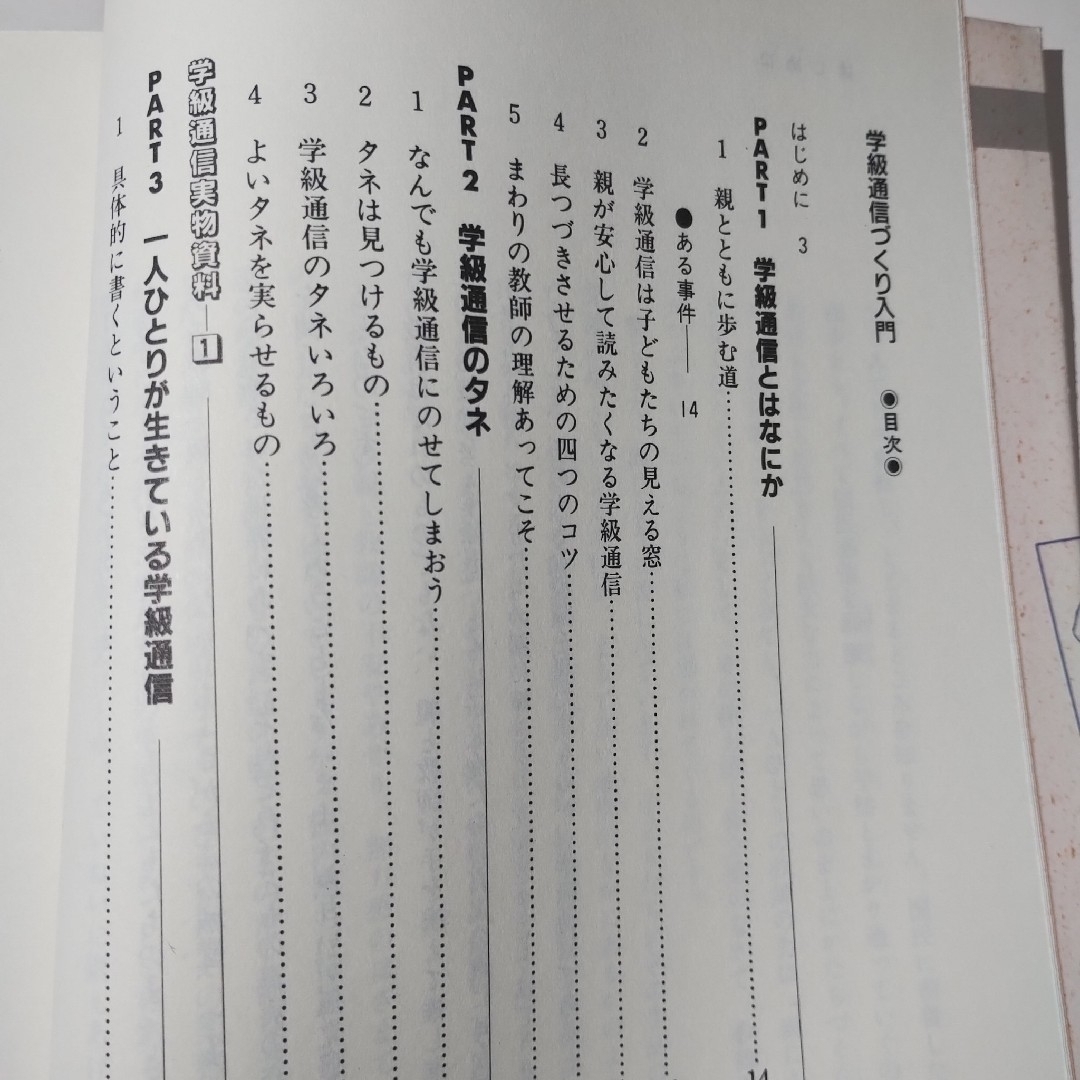 学級通信づくり入門　◉目次◉
はじめに　3
PART1　学級通信とはなにか
1　親とともに歩む道……14
●ある事件——14
2　学級通信は子どもたちの見える窓……
3　親が安心して読みたくなる学級通信……
4　長つづきさせるための四つのコツ……
5　まわりの教師の理解あってこそ……
PART2　学級通信のタネ
1　なんでも学級通信にのせてしまおう……
2　タネは見つけるもの……
3　学級通信のタネいろいろ……
4　よいタネを実らせるもの……
学級通信実物資料—1
PART3　一人ひとりが生きている学級通信
1　具体的に書くということ……